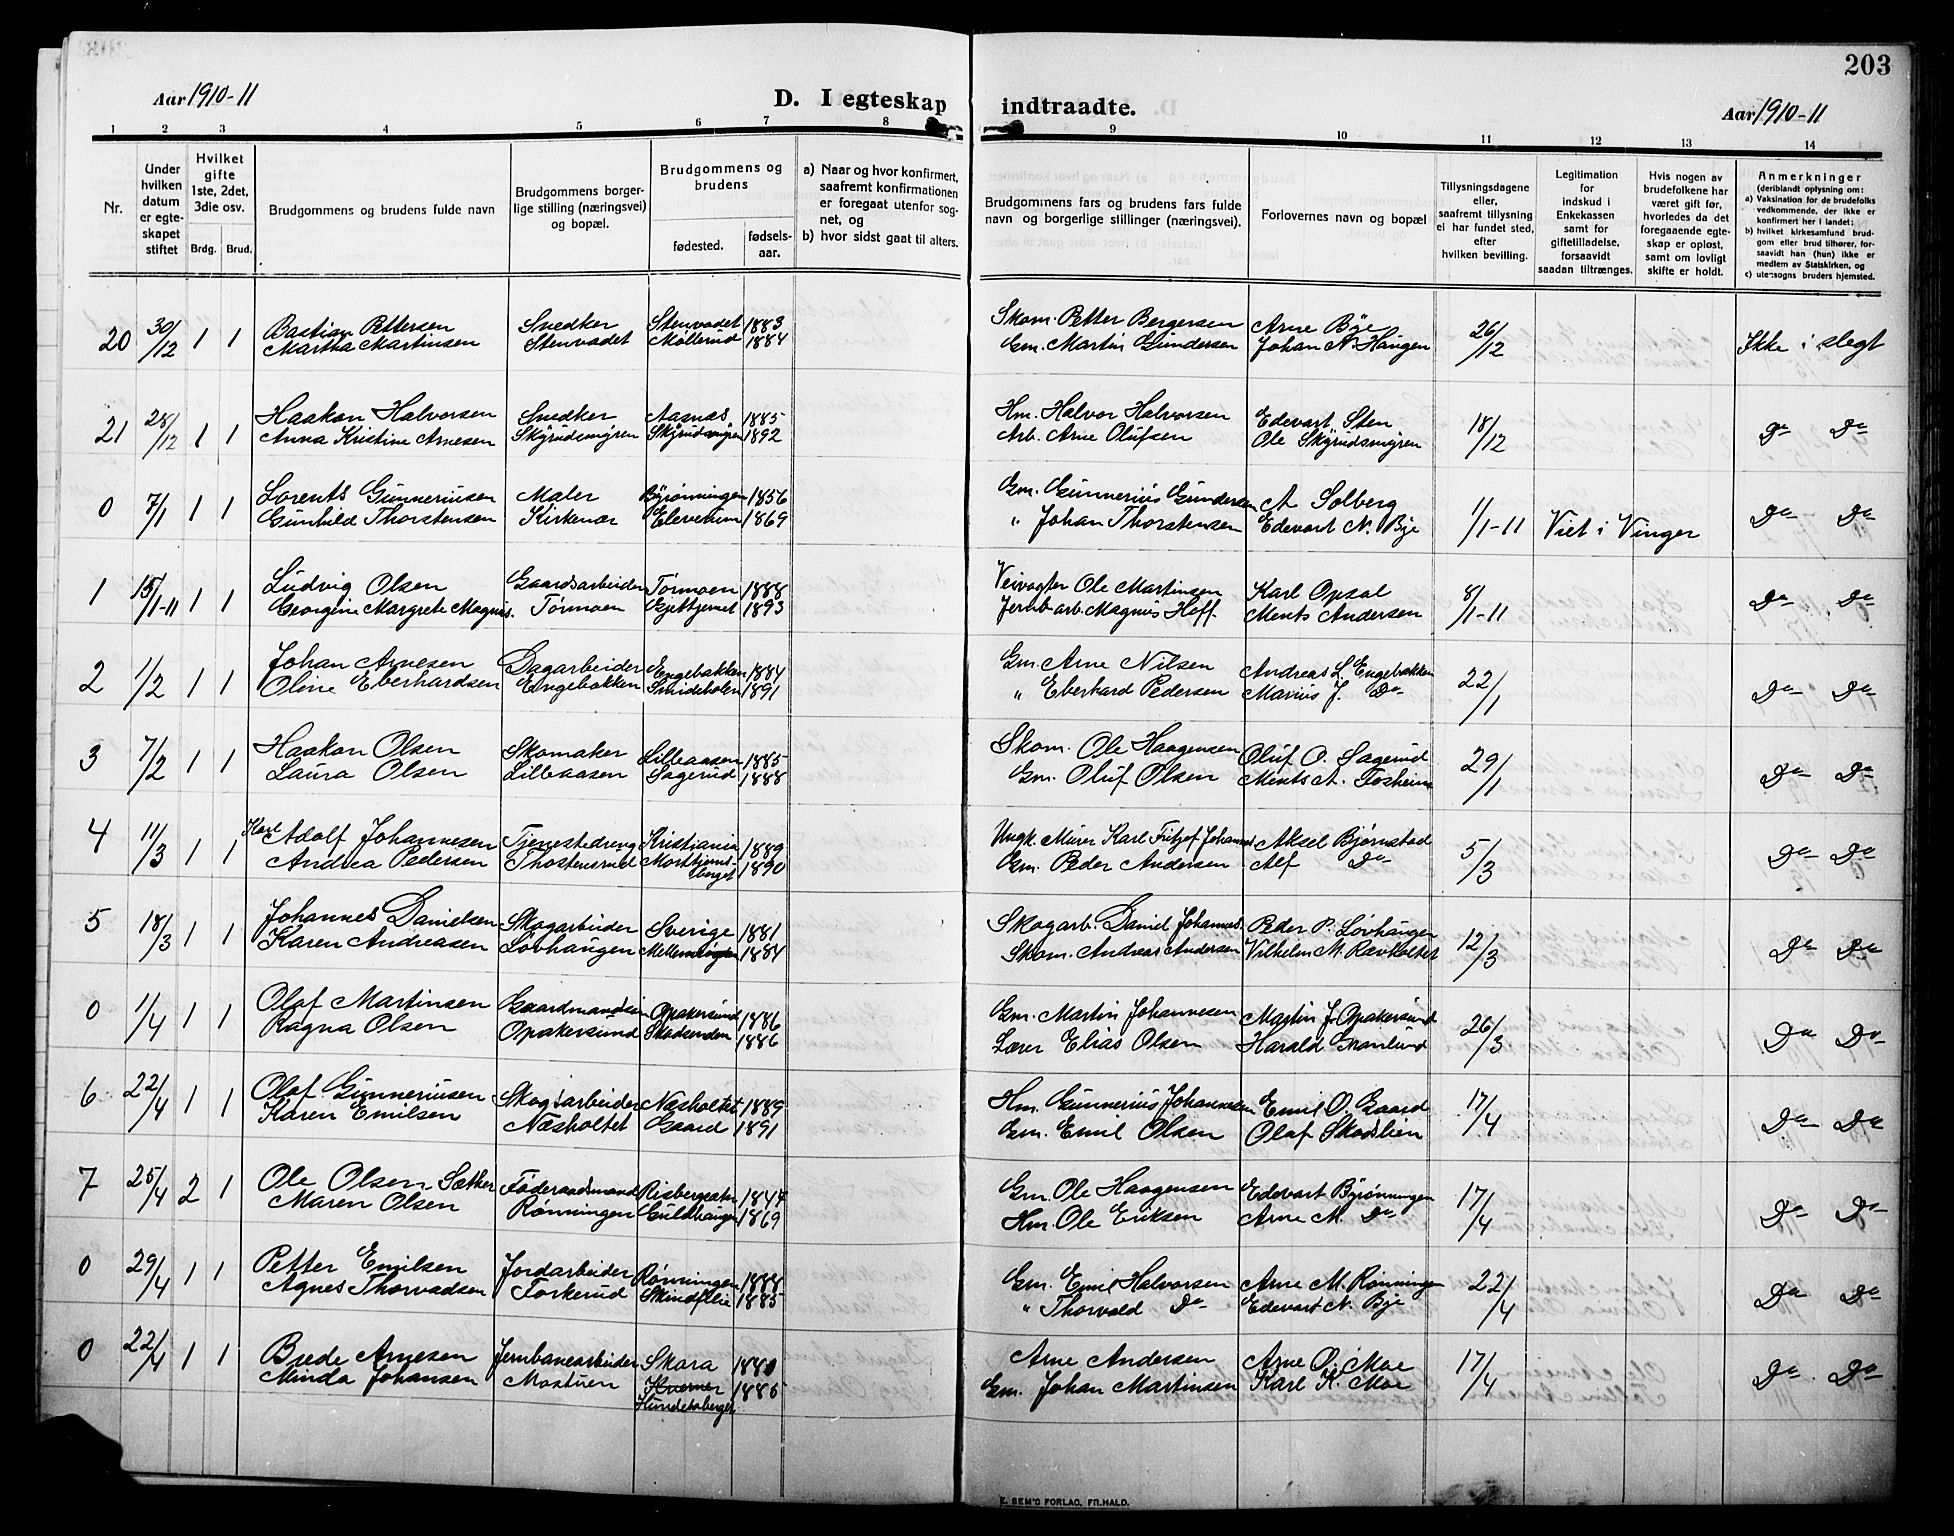 203
Aar 1910-11
D. I egteskap indtraadte.
Aar 1910-11
1 2 3 4 5 6 7 8 9 10 11 12 13 14
Nr.
Under hvilken datum er egteskapet stiftet
Hvilket gifte 1ste, 2det, 3die osv.
Brdg. Brud.
Brudgommens og brudens fulde navn
Brudgommens borgerlige stilling (næringsvei) og bopæl.
Brudgommens og brudens
fødested.
fødselsaar.
a) Naar og hvor konfirmert, saafremt konfirmationen er foregaat utenfor sognet, og
b) hvor sidst gaat til alters.
Brudgommens fars og brudens fars fulde navn og borgerlige stillinger (næringsvei).
Forlovernes navn og bopæl
Tillysningsdagene eller, saafremt tillysning ei har fundet sted, efter hvilken bevilling.
Legitimation for indskud i Enkekassen samt for giftetilladelse, forsaavidt saadan tiltrænges.
Hvis nogen av brudefolkene har været gift før, hvorledes da det foregaaende egteskap er opløst, samt om lovligt skifte er holdt.
Anmerkninger
(deriblandt oplysning om:
a) Vaksination for de brudefolks vedkommende, der ikke er konfirmert her i landet:
b) hvilket kirkesamfund brudgom eller brud tilhører, forsaavidt han (hun) ikke er medlem av Statskirken, og
c) utensogns bruders hjemsted.
20 30/12 1 1 Bastian Pettersen Snedker Stenvadet 1883 Skom. Petter Bergersen Arne Bye 26/12 Ikke i slegt
Martha Martinsen Stenvadet Møllerud 1884 Gm. Martin Gundersen Johan N. Haugen
21 28/12 1 1 Haakon Halvorsen Snedker Aasnes 1885 Hm. Halvor Halvorsen Edevart Sten 18/12 Do Do
Anna Kristine Arnesen Skyrudsmyren Skyrudsmyren 1892 Arb. Arne Olufsen Ole Skyrudsmyren
0 7/1 1 1 Lorents Gunneriusen Maler Byrønningen 1856 Gm. Gunnerius Gundersen A Solberg 1/1-11 Viet i Vinger Do Do
Gunhild Thorstensen Kirkenær Elverum 1869 " Johan Thorstensen Edevart N. Bye
1 15/1-11 1 1 Ludvig Olsen Gaardsarbeider Tørmoen 1888 Veivogter Ole Martinsen Karl Opsal 8/1-11 Do Do
Georgine Margrete Magnis. Tørmoen Gjettjernet 1893 Jernb.arb. Magnus Hoff Ments Andersen
2 1/2 1 1 Johan Arnesen Dagarbeider Engebakken 1884 Gm. Arne Nilsen Andreas L. Engebakken 22/1 Do Do
Oline Eberhardsen Engebakken Smideholen 1891 " Eberhard Pedersen Marius J. Do
3 7/2 1 1 Haakon Olsen Skomaker Lilleaasen 1885 Skom. Ole Haagensen Oluf O. Sagerud 29/1 Do Do
Laura Olsen Lilleaasen Sagerud 1888 Gm. Oluf Olsen Ments A. Fosheim
4 11/3 1 1 Karl Adolf Johannesen Tjenestedreng Kristiania 1889 Ungk. Murer Karl Fritjof Johannes Aksel Bjørnstad 5/3 Do Do
Andrea Pedersen Thostensrud Morttjernsberget 1890 Gm. Peder Andersen Alf Do
5 18/3 1 1 Johannes Danielsen Skogarbeider Sverige 1881 Skogarb. Daniel Johannes. Peder P. Løvhaugen 12/3 Do Do
Karen Andreasen Løvhaugen 1884 Skom. Andreas Andersen Vilhelm M. Ravholtet
0 1/4 1 1 Olaf Martinsen Gaardmandssøn Opakersund 1886 Gm. Martin Johannesen Martin J. Opakersund 26/3 Do Do
Ragna Olsen Opakersund Skadsenden 1886 Lærer Elias Olsen Harald Granlund
6 22/4 1 1 Olaf Gunneriusen Skogsarbeider Næsholtet 1889 Hm. Gunnerius Johannesen Emil O. Gaard 17/4 Do Do
Karen Emilsen Næsholtet Gaard 1891 Gm. Emil Olsen Olaf Skadslien
7 25/4 2 1 Ole Olsen Sæther Føderaadsmand Risbergsæter 1847 Gm. Ole Haagensen Edevart Byrønningen 17/4 Do Do
Maren Olsen Rønningen Guldhaugen 1869 Hm. Ole Eriksen Arne M. Do
0 29/4 1 1 Petter Emilsen Jordarbeider Rønningen 1884 Gm. Emil Halvorsen Arne M. Rønningen 22/4 Do Do
Agnes Thorvadsen Forkerud Skindflie 1885 " Thorvald Do Edevart N. Bye
0 22/4 1 1 Brede Arnesen Jernbanearbeider Skara 1880 Arne Andersen Arne O. Moe 17/4 Do Do
Minda Johansen Mostuen Hverner Hundetoberget 1885 Gm. Johan Martinsen Karl K. Moe
E. SEM'S FORLAG, FR.HALD.